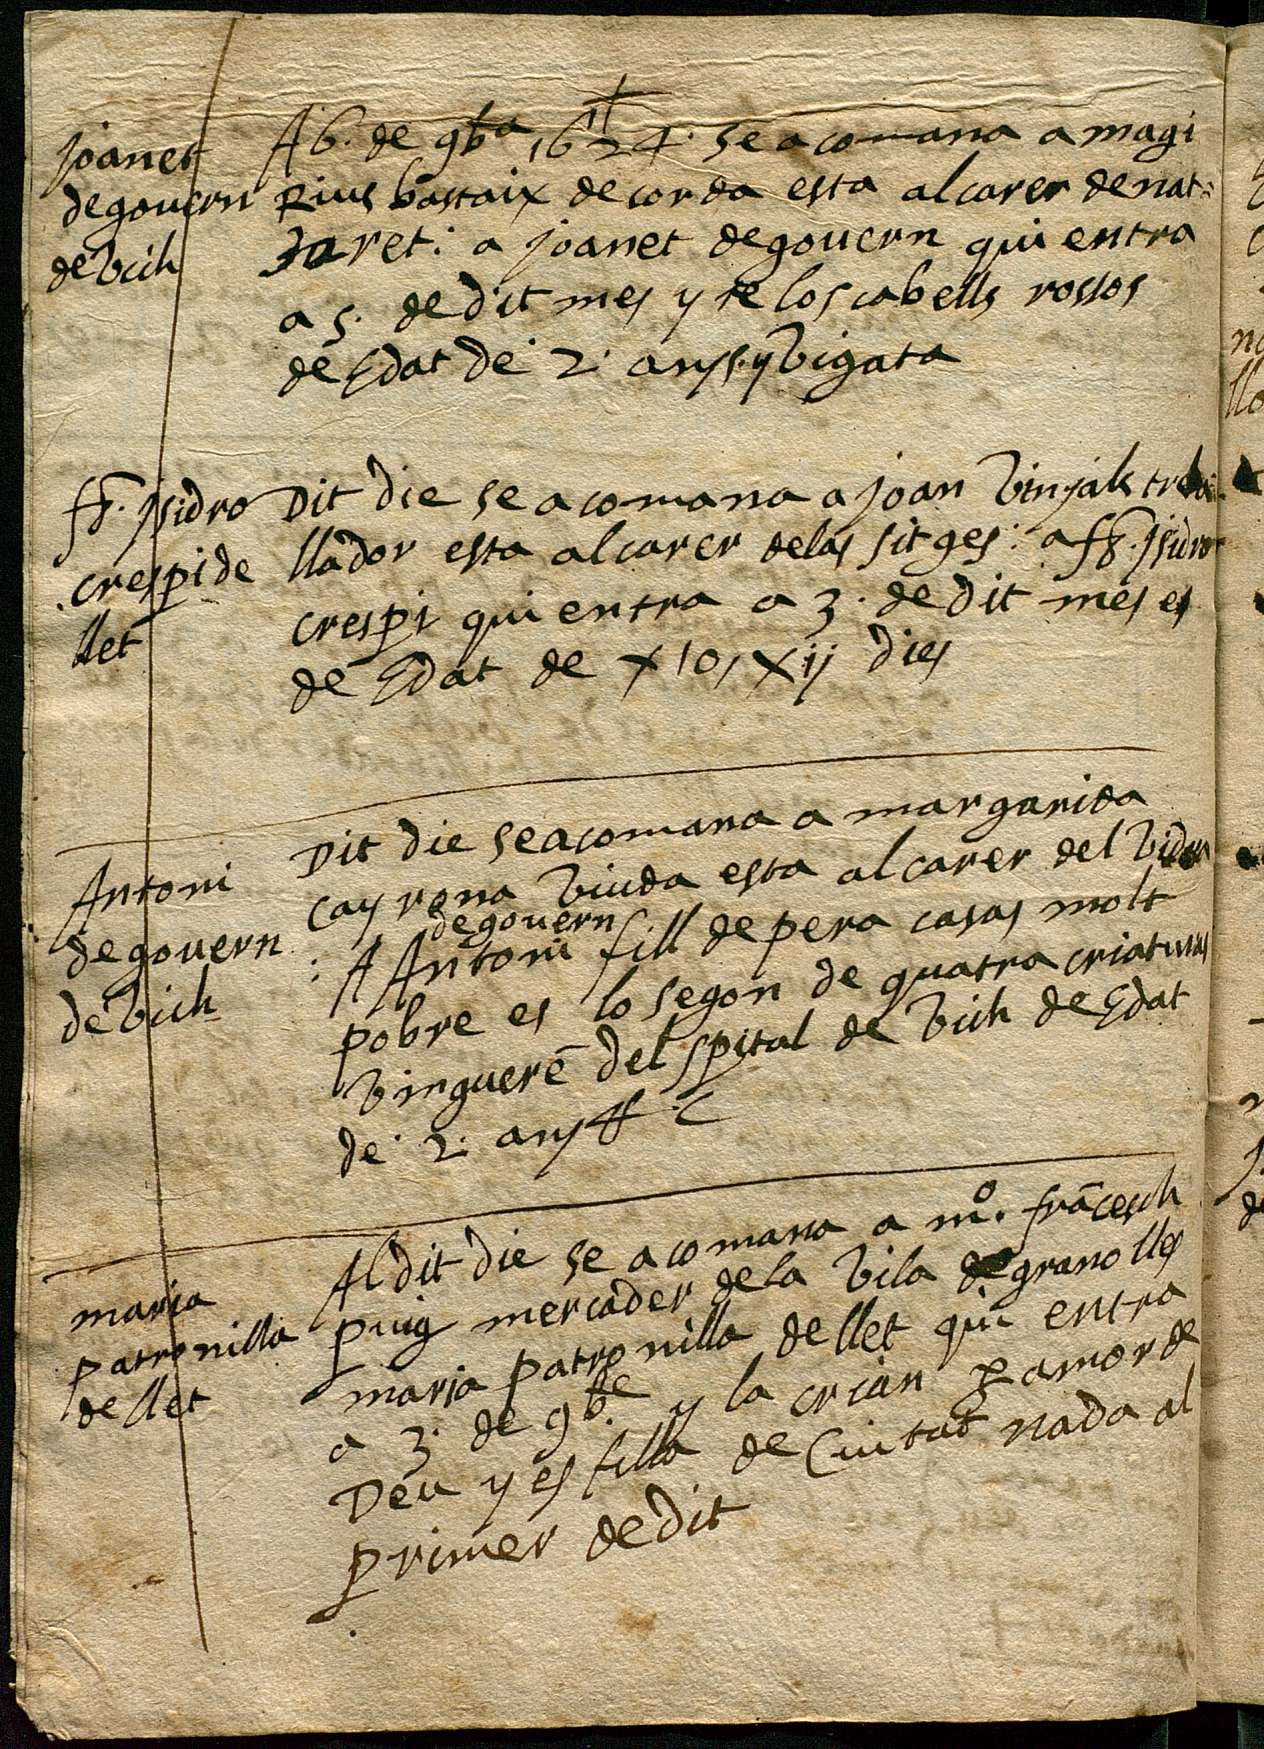 joanet
degovern
de Vich
A 6. de 9bra 1624. se acomana a magi
Rius bastaix de corda esta al carer de nat-
zaret: a joanet degovern qui entra
a 5. de dit mes y te los cabells rossos
de Edat de 2. anys. y Vigata
fr. jsidro
crespi de
llet
Dit die se acomana a joan Vinyals treba-
llador esta al carer de las sitges: a fr. jsidro
crespi qui entra a 3. de dit mes es
de Edat de X dies
Antoni
degovern
de Vich
Dit die se acomana a margarida
Cayrona Viuda esta al carer del Vidra
degovern
: A Antoni fill de pera casas molt
pobre es lo segon de quatra criaturas
Vinguerē del spital de Vich de Edat
de 2. anys
maria
patronilla
de llet
Al dit die se acomana a mo. frācesch
puig mercader de la Vila de granolles
maria patronilla de llet qui entra
a 3. de 9bre y la crian p amor de
Deu y es filla de Ciutat nada al
primer de dit